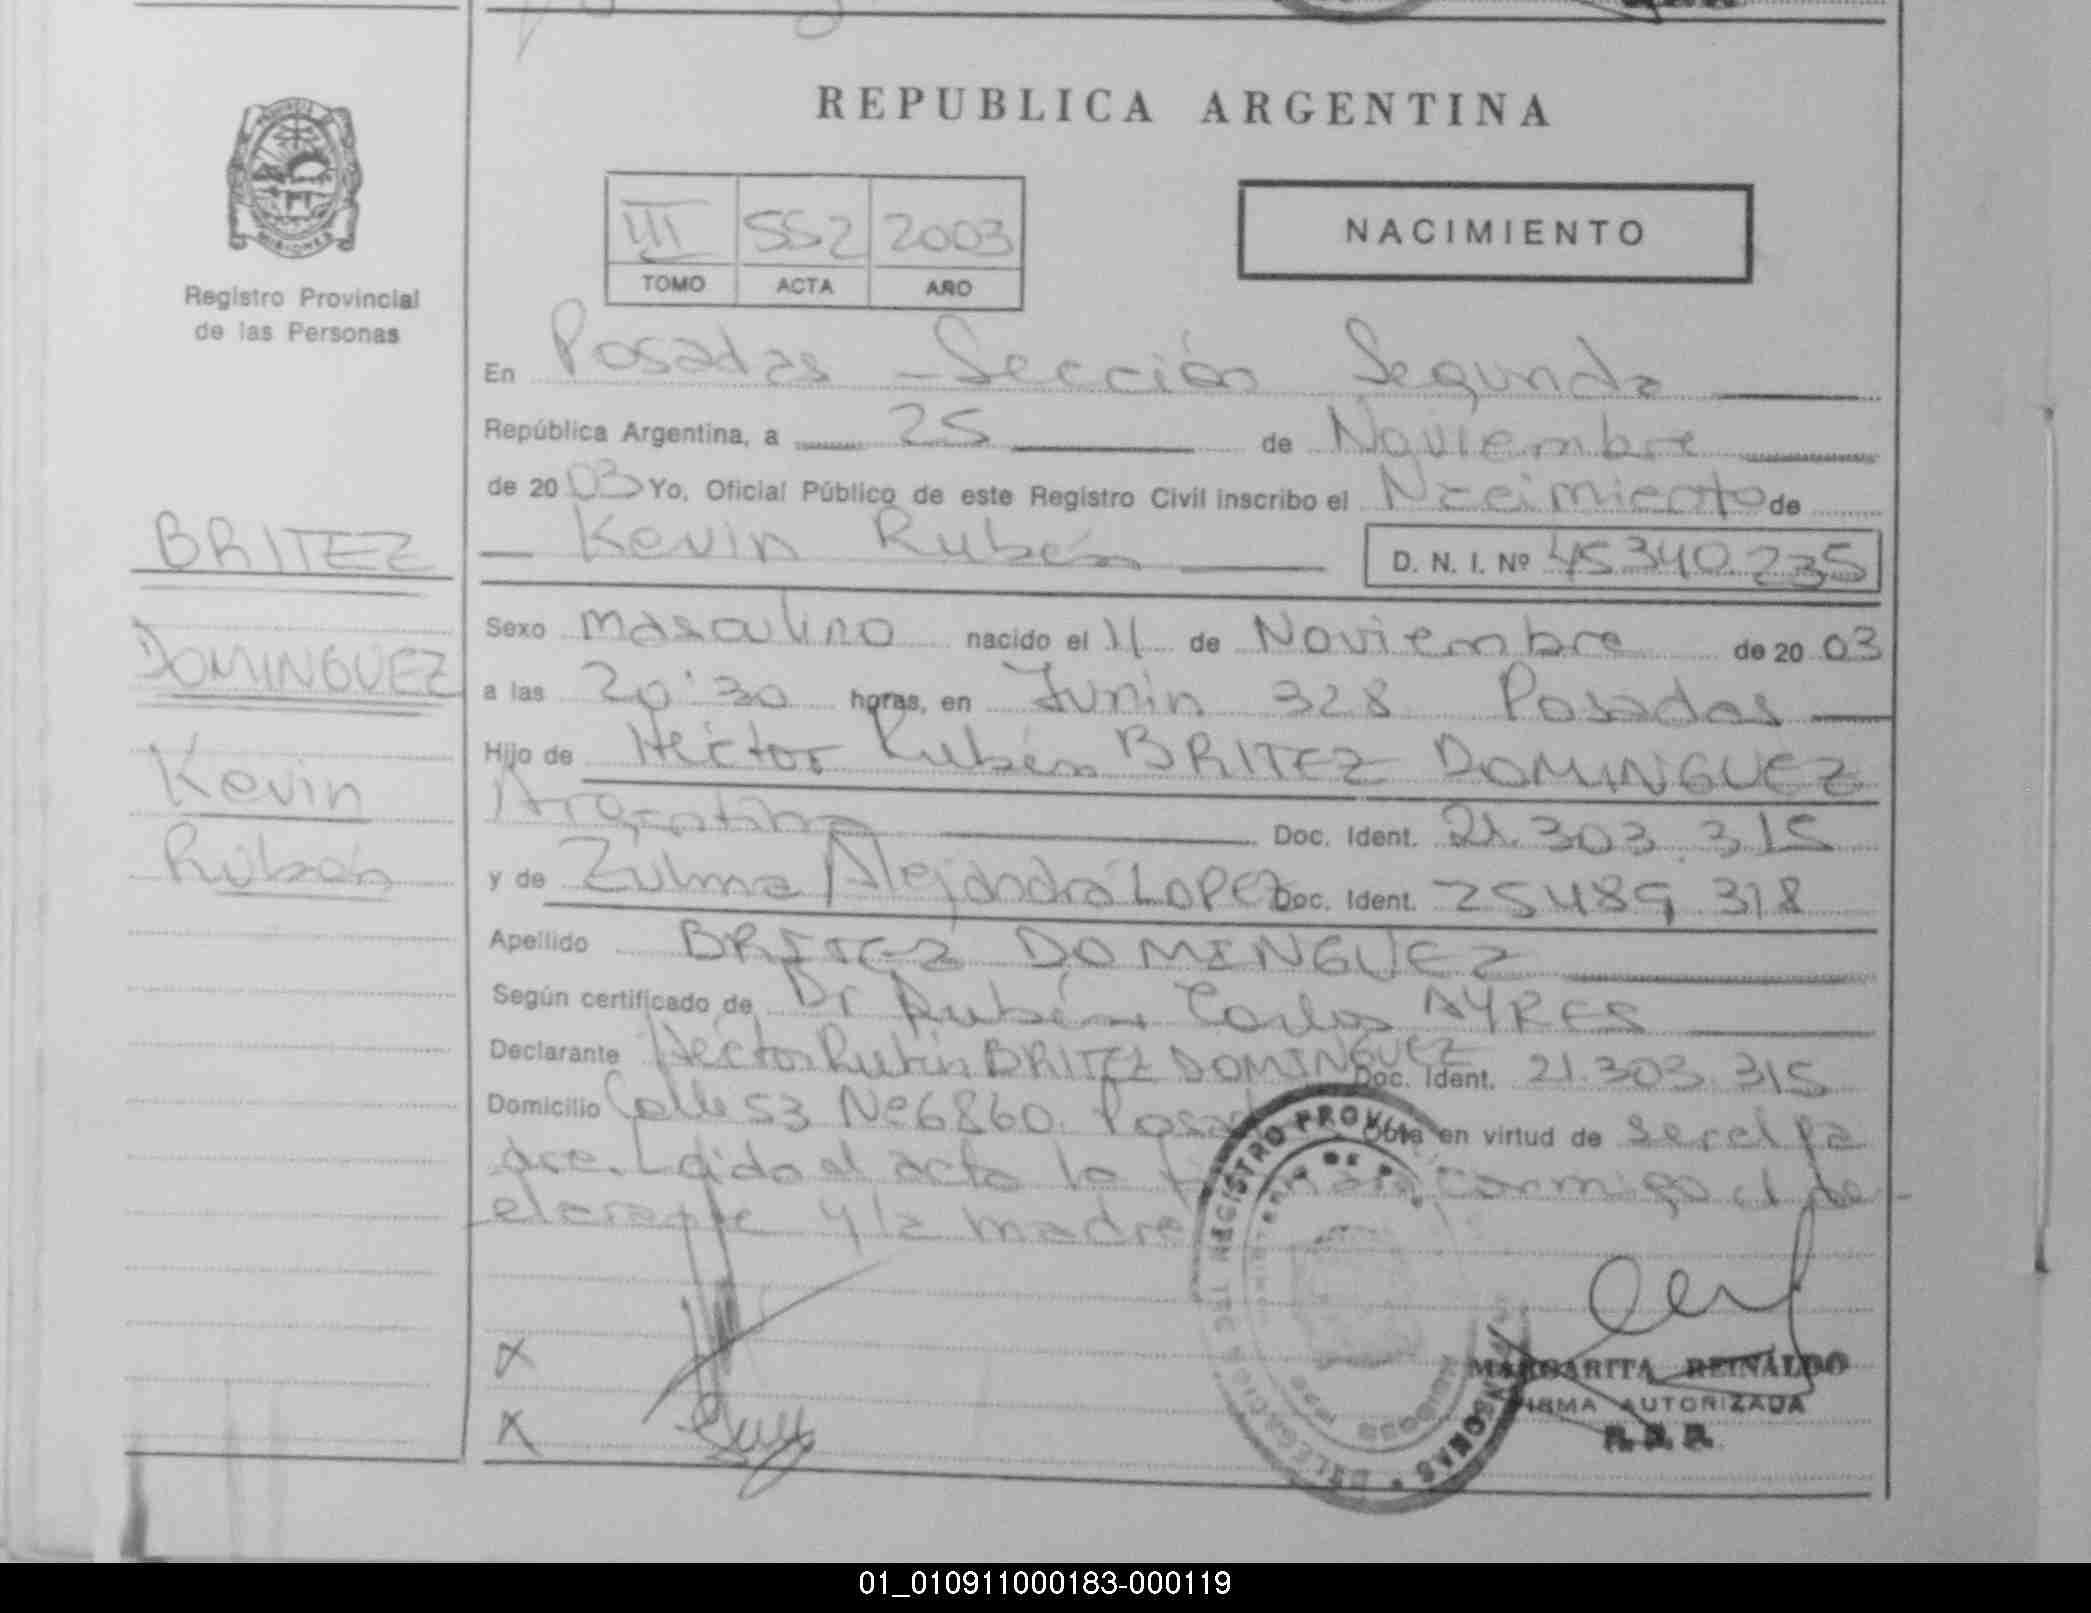 REPUBLICA ARGENTINA
III 552 2003
TOMO ACTA AÑO
NACIMIENTO
MISIONES
Registro Provincial
de las Personas
BRITEZ
DOMINGUEZ
Kevin
Rubén
En Posadas - Sección Segunda
República Argentina, a 25 de Noviembre
de 2003 Yo, Oficial Público de este Registro Civil inscribo el Nacimiento de
Kevin Rubén D. N. I. Nº 45340.235
Sexo masculino nacido el 11 de Noviembre de 20 03
a las 20:30 horas, en Junin 328 Posadas
Hijo de Héctor Rubén BRITEZ DOMINGUEZ
Argentina Doc. Ident. 21.303.315
y de Zulma Alejandra LOPEZ Doc. Ident. 25489318
Apellido BRITEZ DOMINGUEZ
Según certificado de Dr Rubén Carlos AYRES
Declarante Héctor Rubén BRITEZ DOMINGUEZ Doc. Ident. 21.303.315
Domicilio Calle 53 Nº6860. Posadas Obra en virtud de ser el pa
dre. Leido el acto la conmigo el de-
clarante y la madre
X
X
REGISTRO PROV PERSONAS
MARGARITA REINALDO
FIRMA AUTORIZADA
R. P. P.
01_010911000183-000119